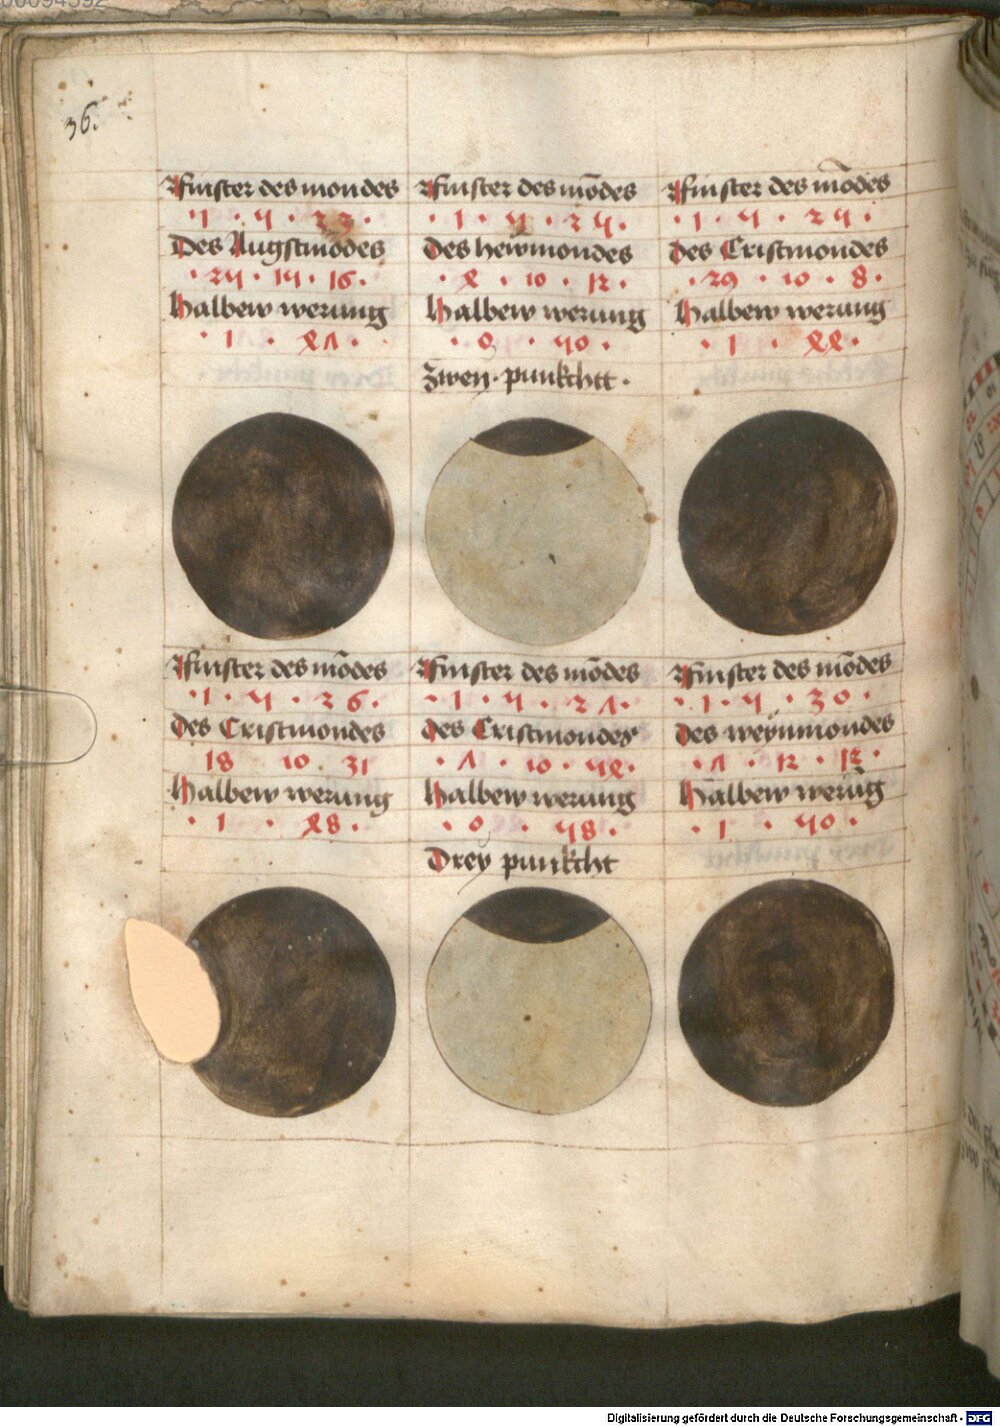 36.
Finster des mondes
1 · 5 · 23 ·
Des Augstmōdes
· 25 · 15 · 16 ·
Halbew werung
· 1 · 47 ·
Finster des mōdes
· 1 · 5 · 25 ·
Des hewmondes
· 4 · 10 · 12 ·
Halbew werung
· 0 · 50 ·
Zwen · punckhtt ·
Finster des mōdes
· 1 · 5 · 25 ·
Des Cristmondes
· 29 · 10 · 8 ·
Halbew werung
· 1 · 44 ·
Finster des mōdes
· 1 · 5 · 26 ·
Des Cristmondes
18 10 · 31
Halbew werung
· 1 · 48 ·
Finster des mōdes
· 1 · 5 · 27 ·
Des Cristmondes
· 7 · 10 · 54 ·
Halbew werung
· 0 · 58 ·
Drey punckht
Finster des mōdes
· 1 · 5 · 30 ·
Des weynmondes
· 7 · 12 · 12 ·
Halbew werūg
· 1 · 50 ·
Digitalisierung gefördert durch die Deutsche Forschungsgemeinschaft - DFG